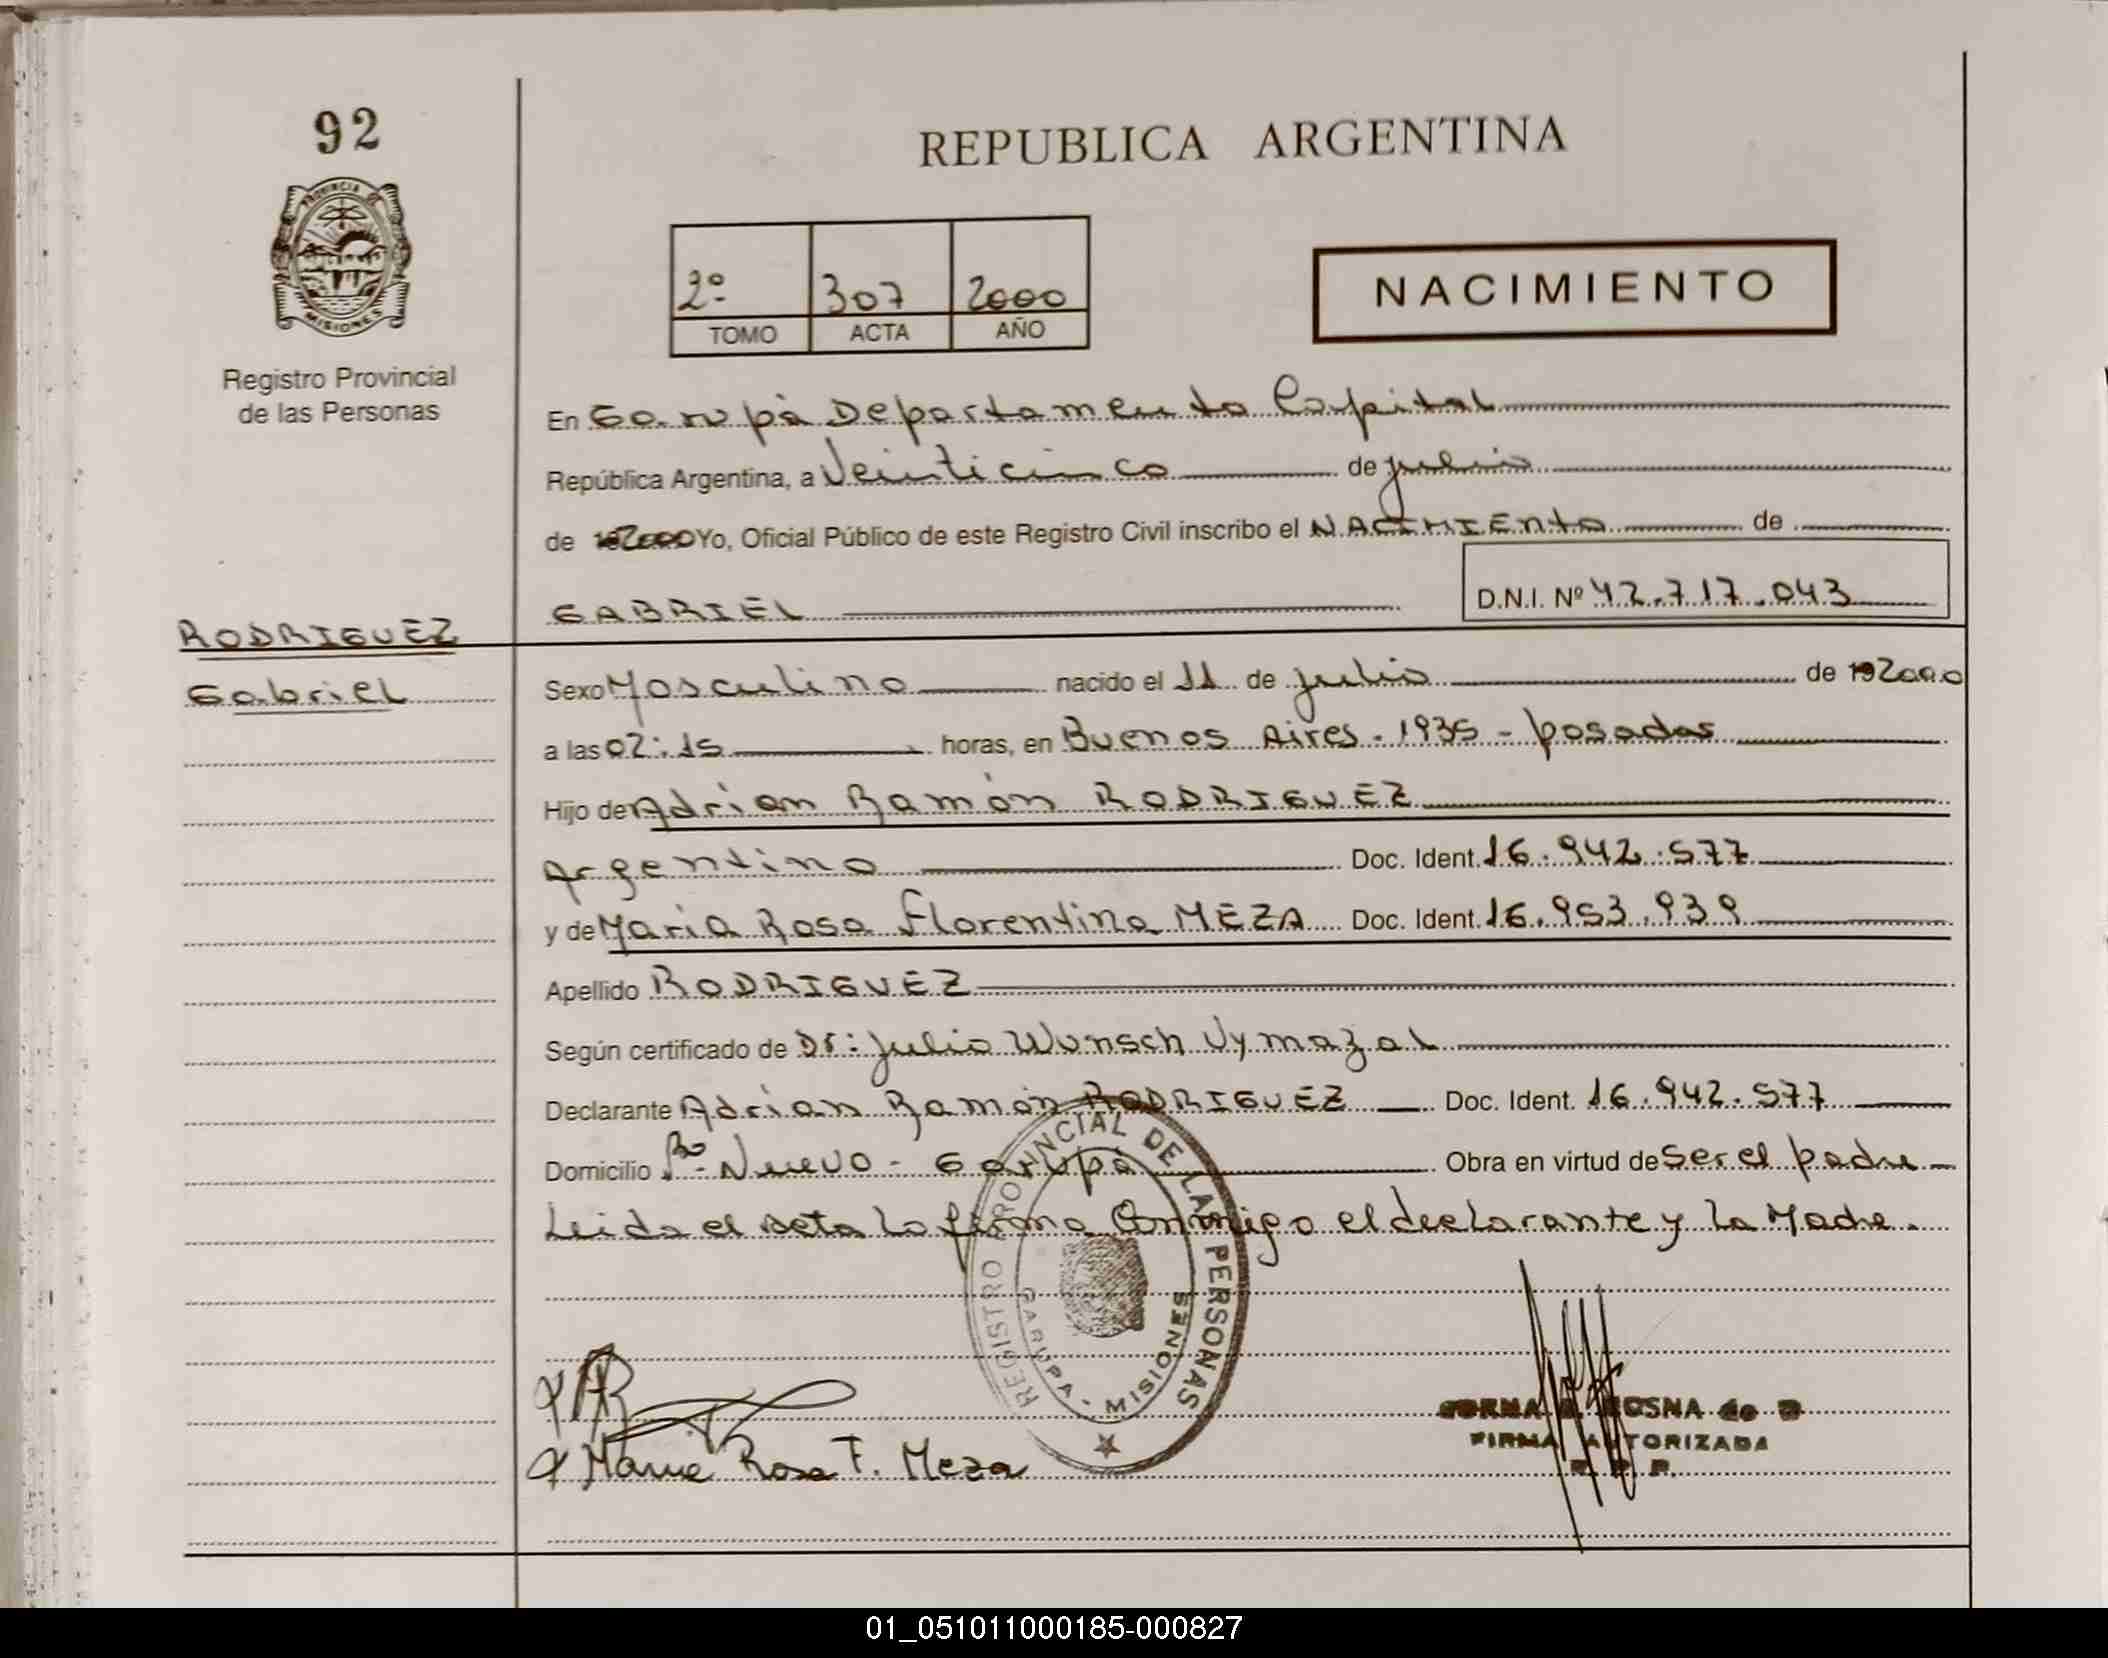 92
REPUBLICA ARGENTINA
PROVINCIA DE
MISIONES
Registro Provincial
de las Personas
2º 307 2000
TOMO ACTA AÑO
NACIMIENTO
En Garupá Departamento Capital
República Argentina, a Veinticinco de julio
de 2000 Yo, Oficial Público de este Registro Civil inscribo el NACIMIENTO de
GABRIEL D.N.I. Nº 42.717.043
RODRIGUEZ
Gabriel
Sexo Masculino nacido el 11 de julio de 192000
a las 02:15 horas, en Buenos Aires - 1935 - posadas
Hijo de Adrian Ramón RODRIGUEZ
Argentino Doc. Ident. 16.942.577
y de Maria Rosa Florentina MEZA Doc. Ident. 16.953.939
Apellido RODRIGUEZ
Según certificado de Dr: Julio Wunsch Vymazal
Declarante Adrian Ramón RODRIGUEZ Doc. Ident. 16.942.577
Domicilio Bº Nuevo - Garupá Obra en virtud de Ser el padre
Leida el acta la firma Conmigo el declarante y la Madre.
REGISTRO PROVINCIAL DE LAS PERSONAS
GARUPA - MISIONES
Maria Rosa F. Meza
NORMA BOSNA de
FIRMA AUTORIZADA
R. P. P.
01_051011000185-000827